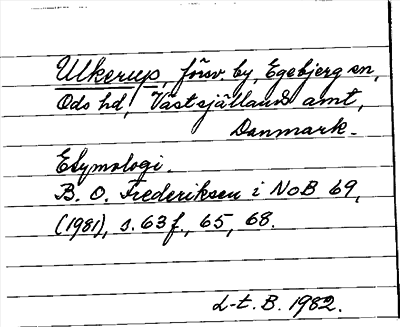 Ulkerup, försv by, Egebjerg sn,
Ods hd, Västsjällands amt,
Danmark.
Etymologi.
B. O. Frederiksen i NoB 69,
(1981), s. 63 f., 65, 68.
L-t. B. 1982.